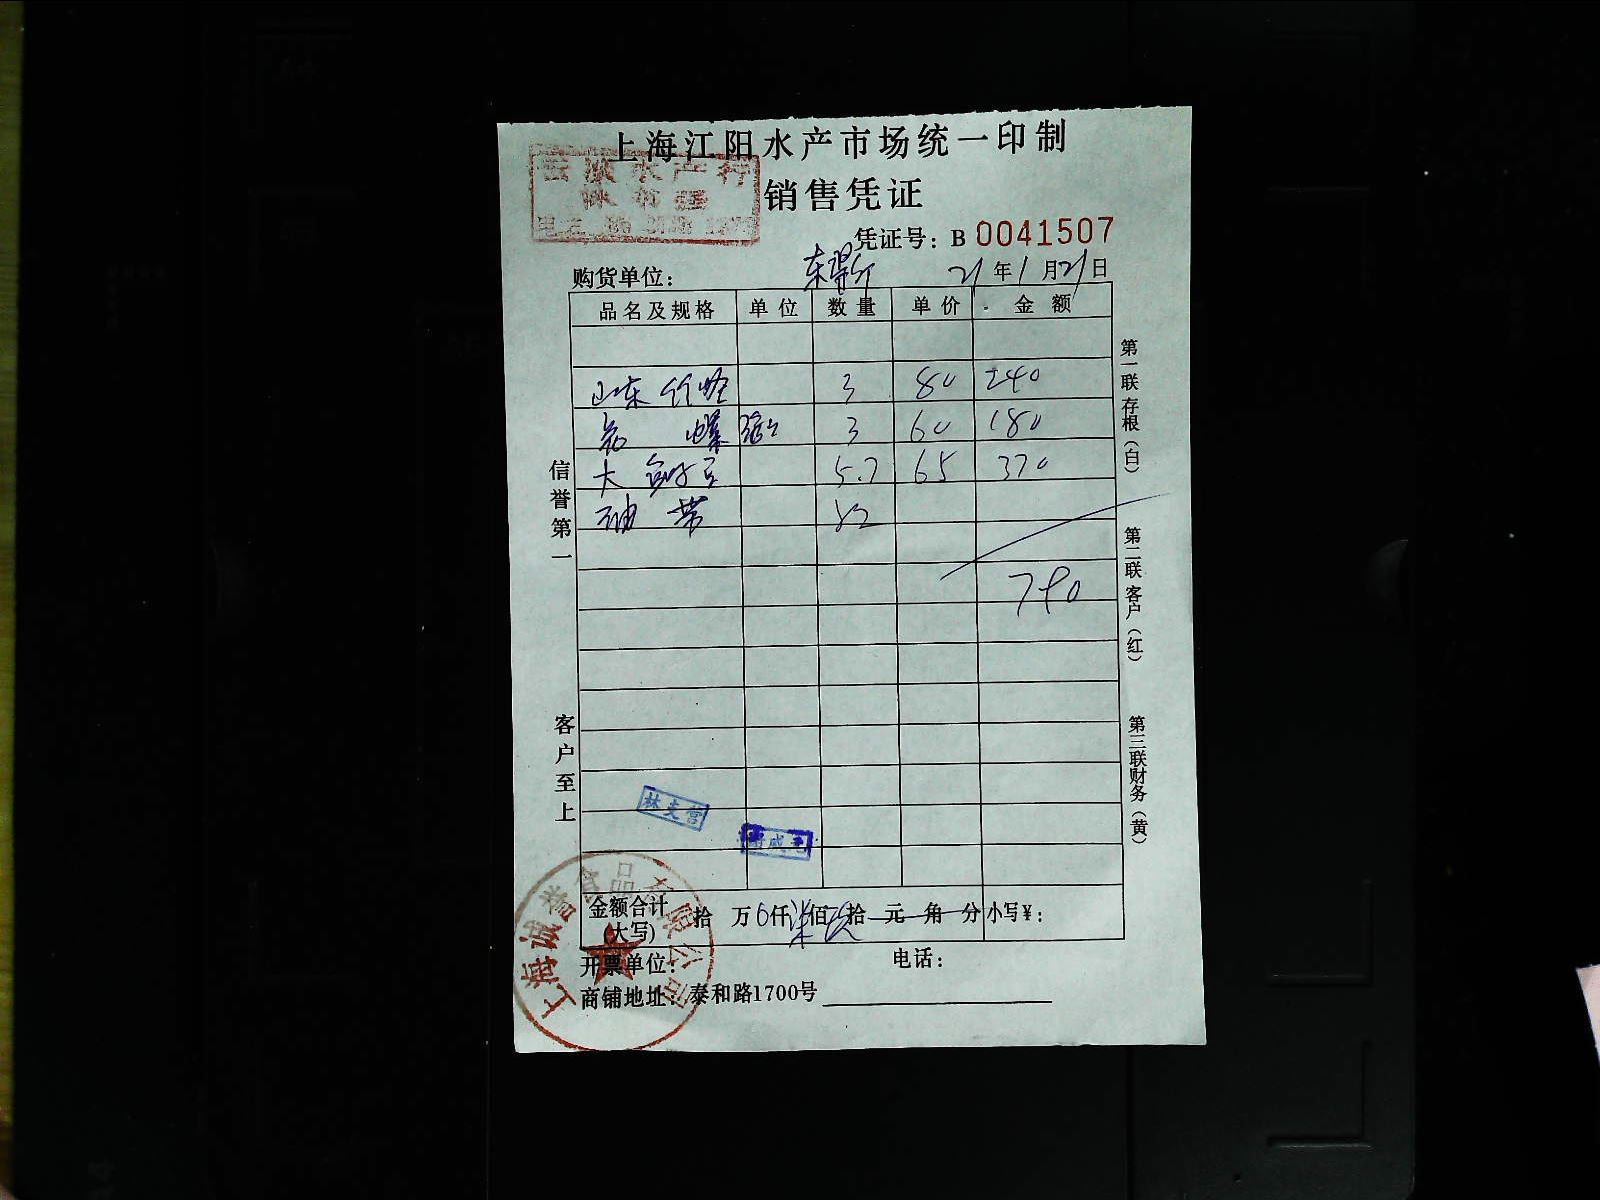 上海江阳水产市场统一印制
水产行
销售凭证
凭证号：B 0041507
购货单位：
21年1月21日
品名及规格 单位 数量 单价 金额
山东竹蛏 3 80 240
螺 3 60 180
大 5.7 65 370
带
790
信誉第一
客户至上
第一联存根（白）
第二联客户（红）
第三联财务（黄）
林支营
金额合计（大写） 拾 万 仟柒佰 拾 元 角 分 小写￥：
上海诚誉食品有限公司
开票单位： 电话：
商铺地址：泰和路1700号